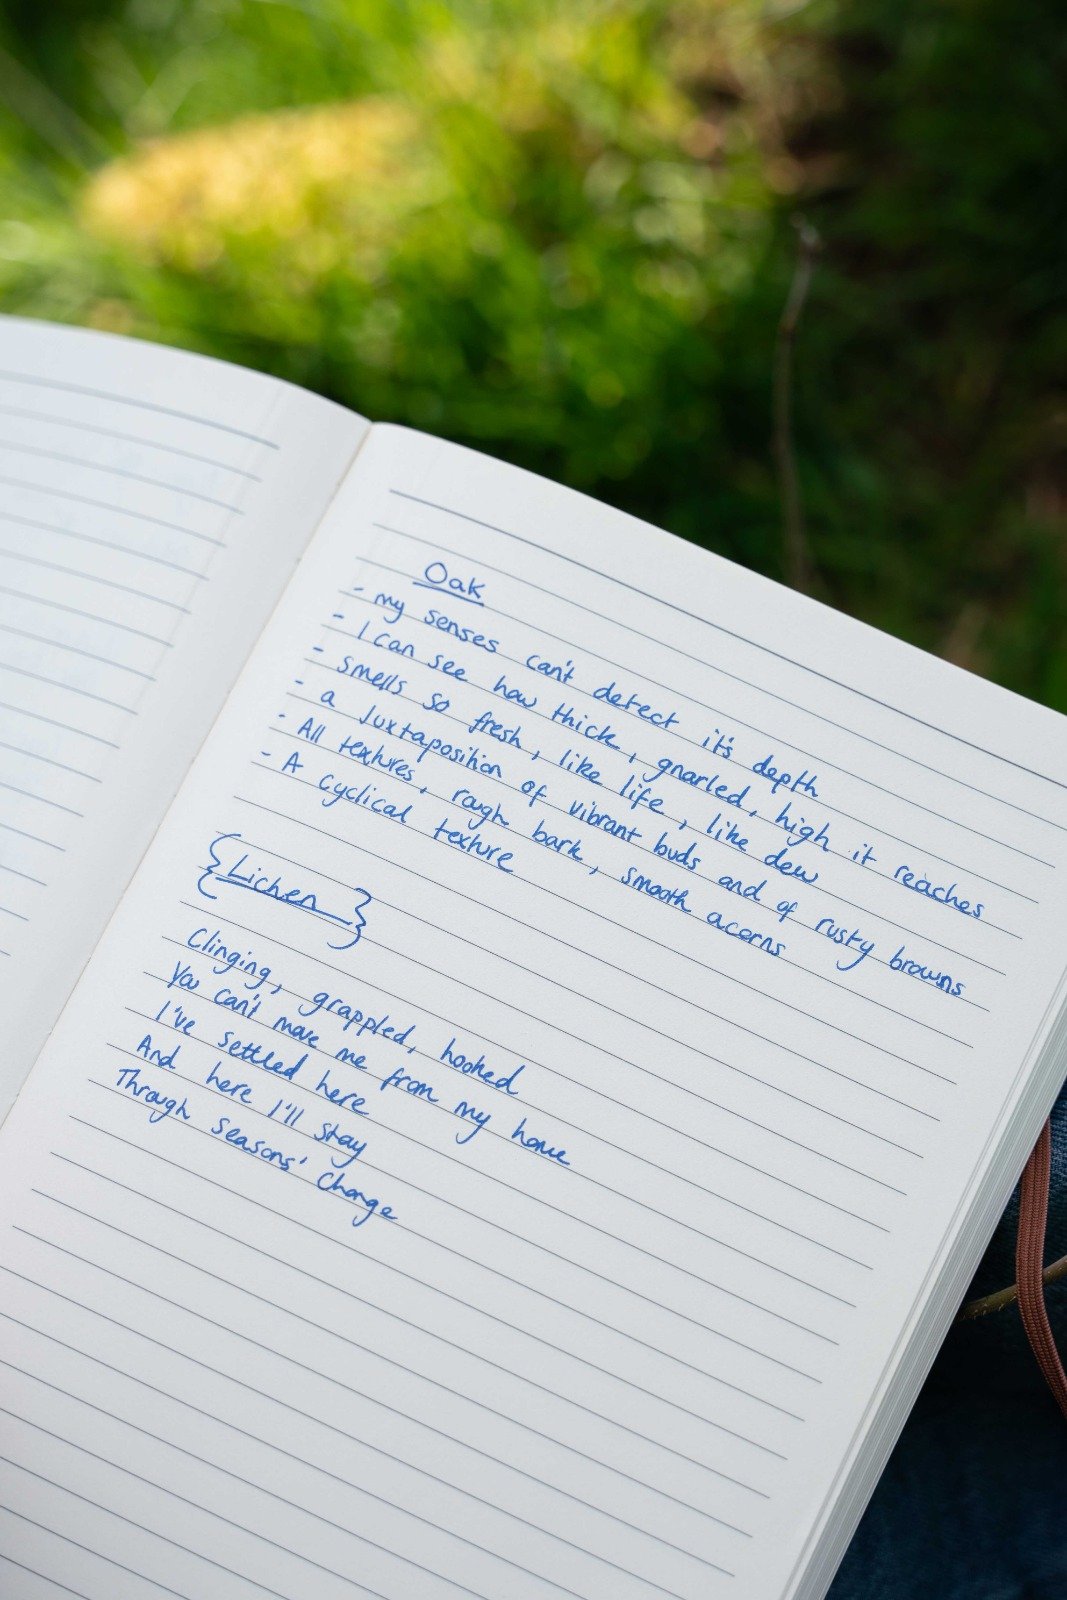 Oak
- my senses can't detect it's depth
- I can see how thick, gnarled, high it reaches
- smells so fresh, like life, like dew
- a juxtaposition of vibrant buds and of rusty browns
- All textures, rough bark, smooth acorns
- A cyclical texture
{Lichen}
Clinging, grappled, hooked
You can't move me from my home
I've settled here
And here I'll stay
Through seasons' change